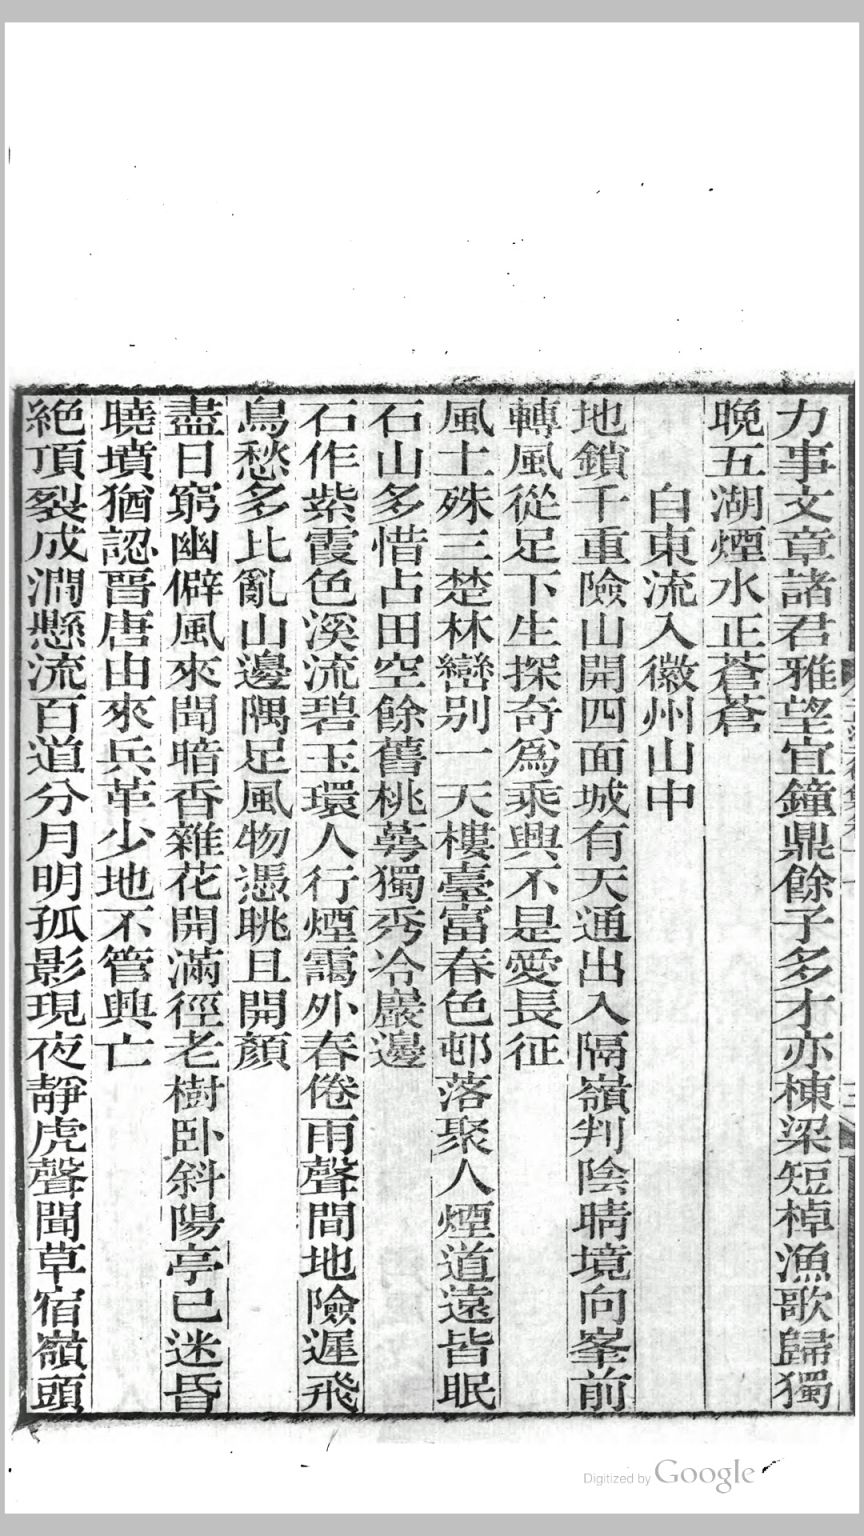 力事文章諸君雅望宜鐘鼎餘子多才亦棟梁短棹漁歌歸獨
晚五湖煙水正蒼蒼
自東流入徽州山中
地鎖千重險山開四面城有天通出入隔嶺判陰晴境向峯前
轉風從足下生探奇爲乘興不是愛長征
風土殊三楚林巒別一天樓臺富春色邨落聚人煙道遠皆眠
石山多惜占田空餘舊桃蕚獨秀冷巖邊
石作紫霞色溪流碧玉環人行煙靄外春倦雨聲間地險遲飛
鳥愁多比亂山邊隅足風物憑眺且開顏
盡日窮幽僻風來聞暗香雜花開滿徑老樹卧斜陽亭已迷昏
曉墳猶認晋唐由來兵革少地不管興亡
絶頂裂成澗懸流百道分月明孤影現夜靜虎聲聞草宿嶺頭
Digitized by Google